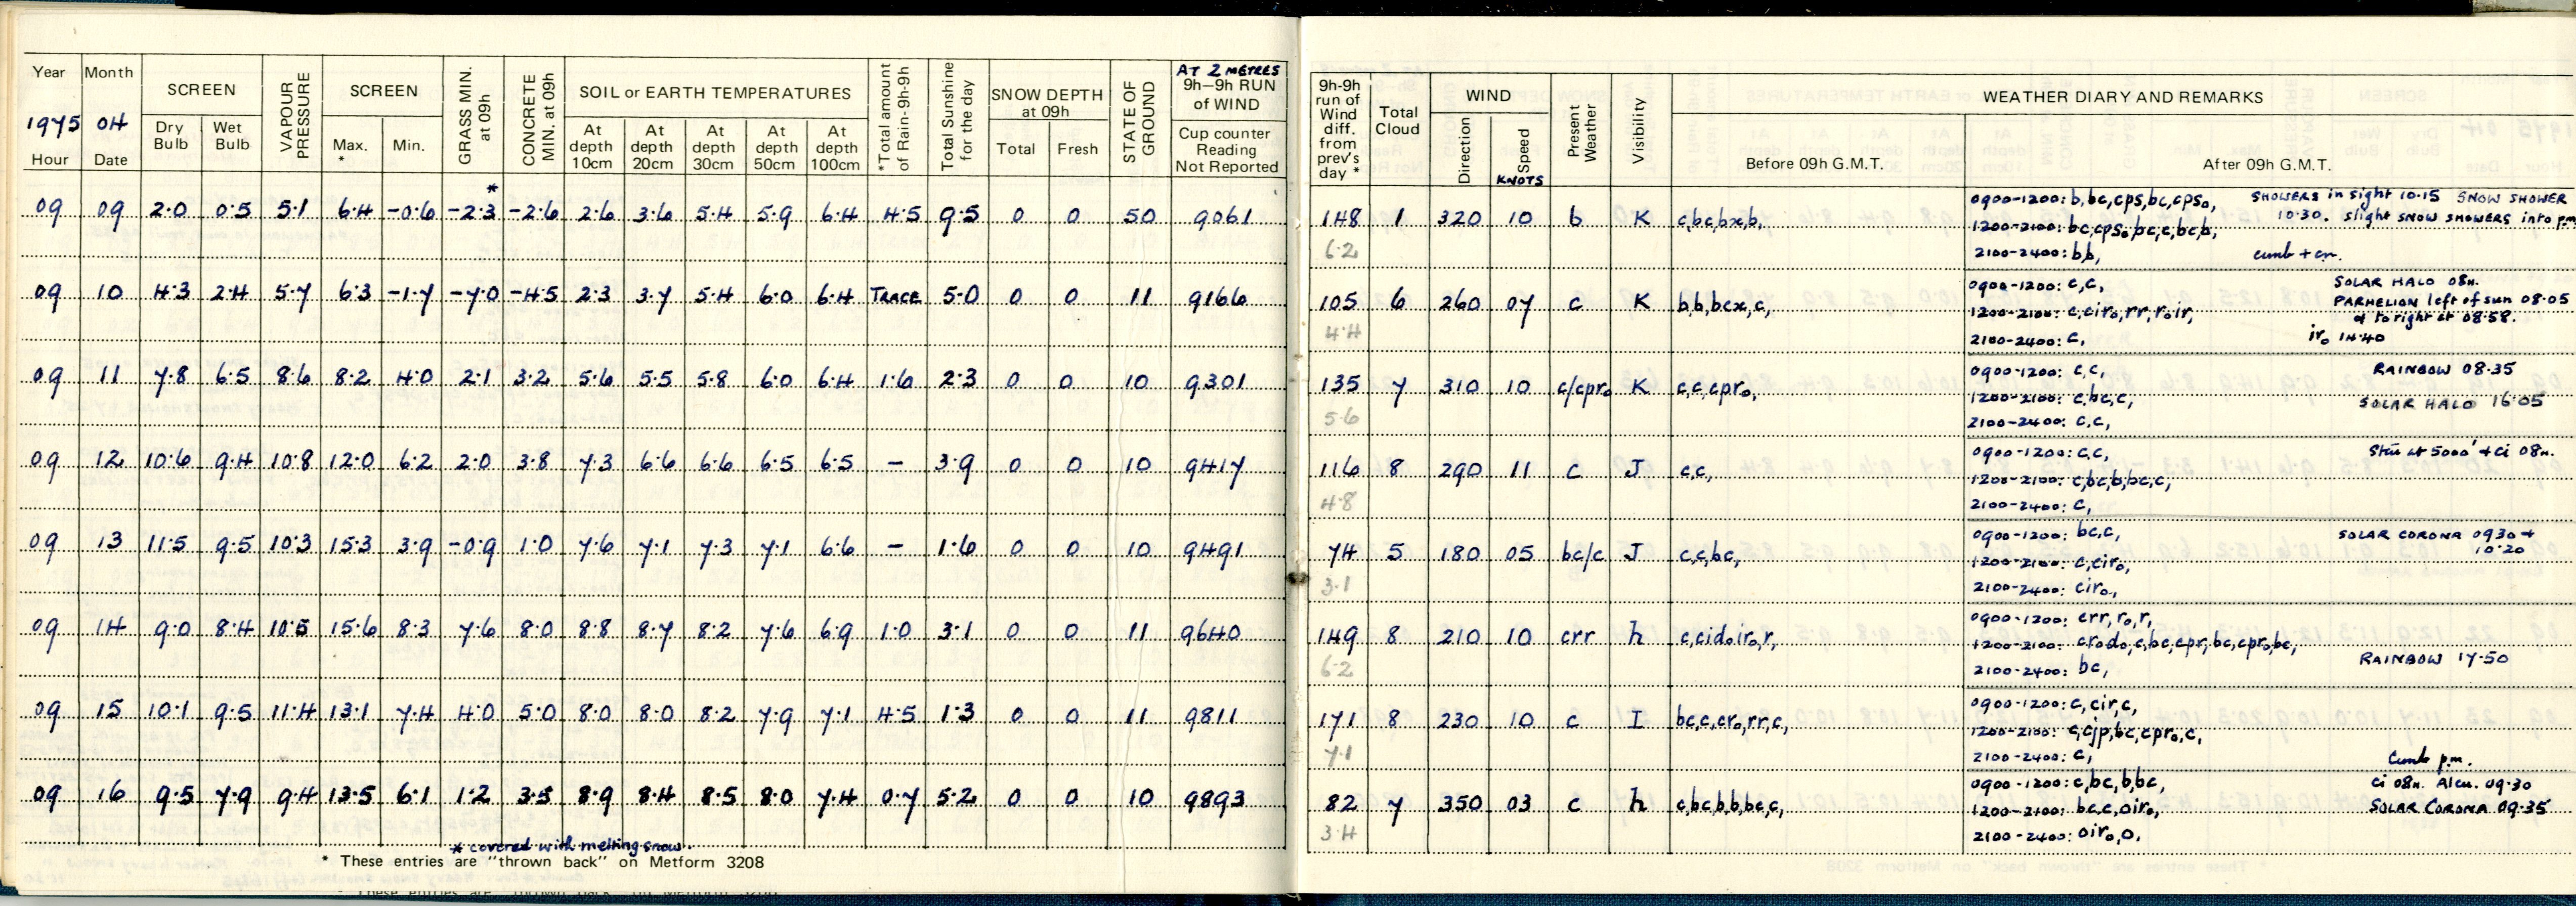 Year Month SCREEN VAPOUR PRESSURE SCREEN GRASS MIN. at 09h CONCRETE MIN. at 09h SOIL or EARTH TEMPERATURES *Total amount of Rain-9h-9h Total Sunshine for the day SNOW DEPTH at 09h STATE OF GROUND AT 2 METRES 9h–9h RUN of WIND
1975 04 Dry Bulb Wet Bulb Max. * Min. At depth 10cm At depth 20cm At depth 30cm At depth 50cm At depth 100cm Total Fresh Cup counter Reading Not Reported
Hour Date
9h-9h run of Wind diff. from prev's day * Total Cloud WIND Direction Speed KNOTS Present Weather Visibility WEATHER DIARY AND REMARKS
Before 09h G.M.T. After 09h G.M.T.
*
09 09 2.0 0.5 5.1 6.4 -0.6 -2.3 -2.6 2.6 3.6 5.4 5.9 6.4 4.5 9.5 0 0 50 9061 148 1 320 10 b K c,bc,bx,b,
6.2
0900-1200: b,bc,cps,bc,cpso, SHOWERS in sight 10.15 SNOW SHOWER
10.30. slight SNOW SHOWERS into pm
1200-2100: bc,cpso,bc,c,bc,b,
2100-2400: b,b, cumb + cn.
09 10 4.3 2.4 5.7 6.3 -1.7 -7.0 -4.5 2.3 3.7 5.4 6.0 6.4 TRACE 5.0 0 0 11 9166 105 6 260 07 c K b,b,bcx,c,
4.4
0900-1200: c,c, SOLAR HALO 08h.
PARHELION left of sun 08.05
1200-2100: c,ciro,rr,roir, & to right at 08.58.
2100-2400: c, iro 14.40
09 11 7.8 6.5 8.6 8.2 4.0 2.1 3.2 5.6 5.5 5.8 6.0 6.4 1.6 2.3 0 0 10 9301 135 7 310 10 c/cpro K c,c,cpro,
5.6
0900-1200: c,c, RAINBOW 08.35
1200-2100: c,bc,c, SOLAR HALO 16.05
2100-2400: c,c,
09 12 10.6 9.4 10.8 12.0 6.2 2.0 3.8 7.3 6.6 6.6 6.5 6.5 – 3.9 0 0 10 9417 116 8 290 11 c J c,c,
4.8
0900-1200: c,c, Stcu at 5000' + ci 08h.
1200-2100: c,bc,b,bc,c,
2100-2400: c,
09 13 11.5 9.5 10.3 15.3 3.9 -0.9 1.0 7.6 7.1 7.3 7.1 6.6 – 1.6 0 0 10 9491 74 5 180 05 bc/c J c,c,bc,
3.1
0900-1200: bc,c, SOLAR CORONA 0930 +
10.20
1200-2100: c,ciro,
2100-2400: ciro,
09 14 9.0 8.4 10.5 15.6 8.3 7.6 8.0 8.8 8.7 8.2 7.6 6.9 1.0 3.1 0 0 11 9640 149 8 210 10 crr h c,cidoiro,r,
6.2
0900-1200: crr,ro,r,
1200-2100: crodo,c,bc,cpr,bc,cpro,bc,
RAINBOW 17.50
2100-2400: bc,
09 15 10.1 9.5 11.4 13.1 7.4 4.0 5.0 8.0 8.0 8.2 7.9 7.1 4.5 1.3 0 0 11 9811 171 8 230 10 c I bc,c,cro,rr,c,
7.1
0900-1200: c,cir,c,
1200-2100: c,cjp,bc,cpro,c,
2100-2400: c, Cumb p.m.
09 16 9.5 7.9 9.4 13.5 6.1 1.2 3.5 8.9 8.4 8.5 8.0 7.4 0.7 5.2 0 0 10 9893 82 7 350 03 c h c,bc,b,b,bc,c,
3.4
0900-1200: c,bc,b,bc, Ci 08h. Alcu. 09.30
1200-2100: bc,c,oiro, SOLAR CORONA 09.35
2100-2400: oiro,o.
* covered with melting snow.
* These entries are "thrown back" on Metform 3208